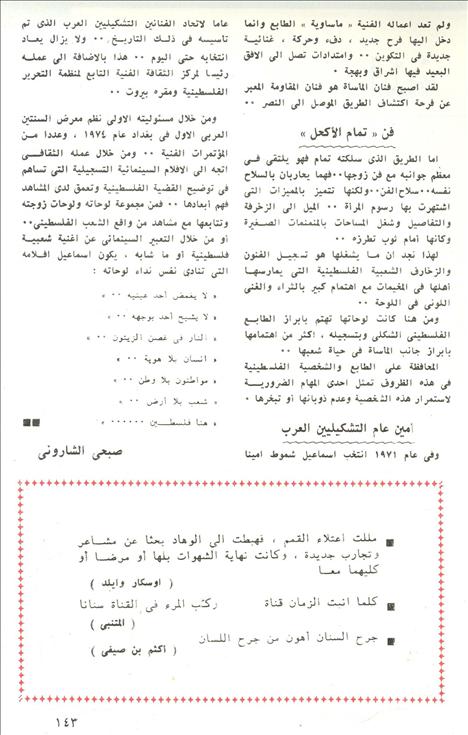 ولم تعد اعماله الفنية « ماساوية » الطابع وانما
دخل اليها فرح جديد ، دفء وحركة ، غنائية
جديدة فى التكوين ٠٠ وامتدادات تصل الى الافق
البعيد فيها اشراق وبهجة ٠
لقد اصبح فنان المأساة هو فنان المقاومة المعبر
عن فرحة اكتشاف الطريق الموصل الى النصر ٠٠
فن « تمام الأكحل »
اما الطريق الذى سلكته تمام فهو يلتقى فى
معظم جوانبه مع فن زوجها٠٠فهما يحاربان بالسلاح
نفسه٠٠سلاح الفن٠٠ولكنها تتميز بالميزات التى
اشتهرت بها رسوم المرأة ٠٠ الميل الى الزخرفة
والتفاصيل وشغل المساحات بالمنمنمات الصغيرة
وكأنها أمام ثوب تطرزه ٠٠
لهذا نجد ان ما يشغلها هو تسجيل الفنون
والزخارف الشعبية الفلسطينية التى يمارسها
أهلها فى المخيمات مع اهتمام كبير بالثراء والغنى
اللونى فى اللوحة ٠٠
ومن هنا كانت لوحاتها تهتم بابراز الطابع
الفلسطينى الشكلى وبتسجيله ، اكثر من اهتمامها
بابراز جانب المأساة فى حياة شعبها ٠٠
المحافظة على الطابع والشخصية الفلسطينية
فى هذه الظروف تمثل احدى المهام الضرورية
لاستمرار هذه الشخصية وعدم ذوبانها أو تبخرها ٠
أمين عام التشكيليين العرب
وفى عام ١٩٧١ انتخب اسماعيل شموط امينا
عاما لاتحاد الفنانين التشكيليين العرب الذى تم
تأسيسه فى ذلك التاريخ ٠٠ ولا يزال يعاد
انتخابه حتى اليوم ٠٠ هذا بالاضافة الى عمله
رئيسا لمركز الثقافة الفنية التابع لمنظمة التحرير
الفلسطينية ومقره بيروت ٠٠
ومن خلال مسئوليته الاولى نظم معرض السنتين
العربى الاول فى بغداد عام ١٩٧٤ ، وعددا من
المؤتمرات الفنية ٠٠ ومن خلال عمله الثقافى
اتجه الى الافلام السينمائية التسجيلية التى تساهم
فى توضيح القضية الفلسطينية وتعمق لدى المشاهد
فهم أبعادها ٠٠ فمن مجموعة لوحاته ولوحات زوجته
وتتابعها مع مشاهد من واقع الشعب الفلسطينى٠٠
أو من خلال التعبير السينمائى عن أغنية شعبية
فلسطينية أو ما شابه ، يكون اسماعيل افلامه
التى تنادى نفس نداء لوحاته :
« لا يغمض أحد عينيه ٠٠ »
« لا يشيح أحد بوجهه ٠٠ »
« النار فى غصن الزيتون ٠٠ »
« انسان بلا هوية ٠٠ »
« مواطنون بلا وطن ٠٠ »
« شعب بلا أرض ٠٠ »
« هنا فلسطين ٠٠٠٠٠٠ »
صبحى الشارونى
مللت اعتلاء القمم ، فهبطت الى الوهاد بحثا عن مشاعر
وتجارب جديدة ، وكانت نهاية الشهوات بلها أو مرضا أو
كليهما معا
( أوسكار وايلد )
كلما انبت الزمان قناة ركب المرء فى القناة سنانا
( المتنبى )
جرح السنان أهون من جرح اللسان
( أكثم بن صيفى )
١٤٣